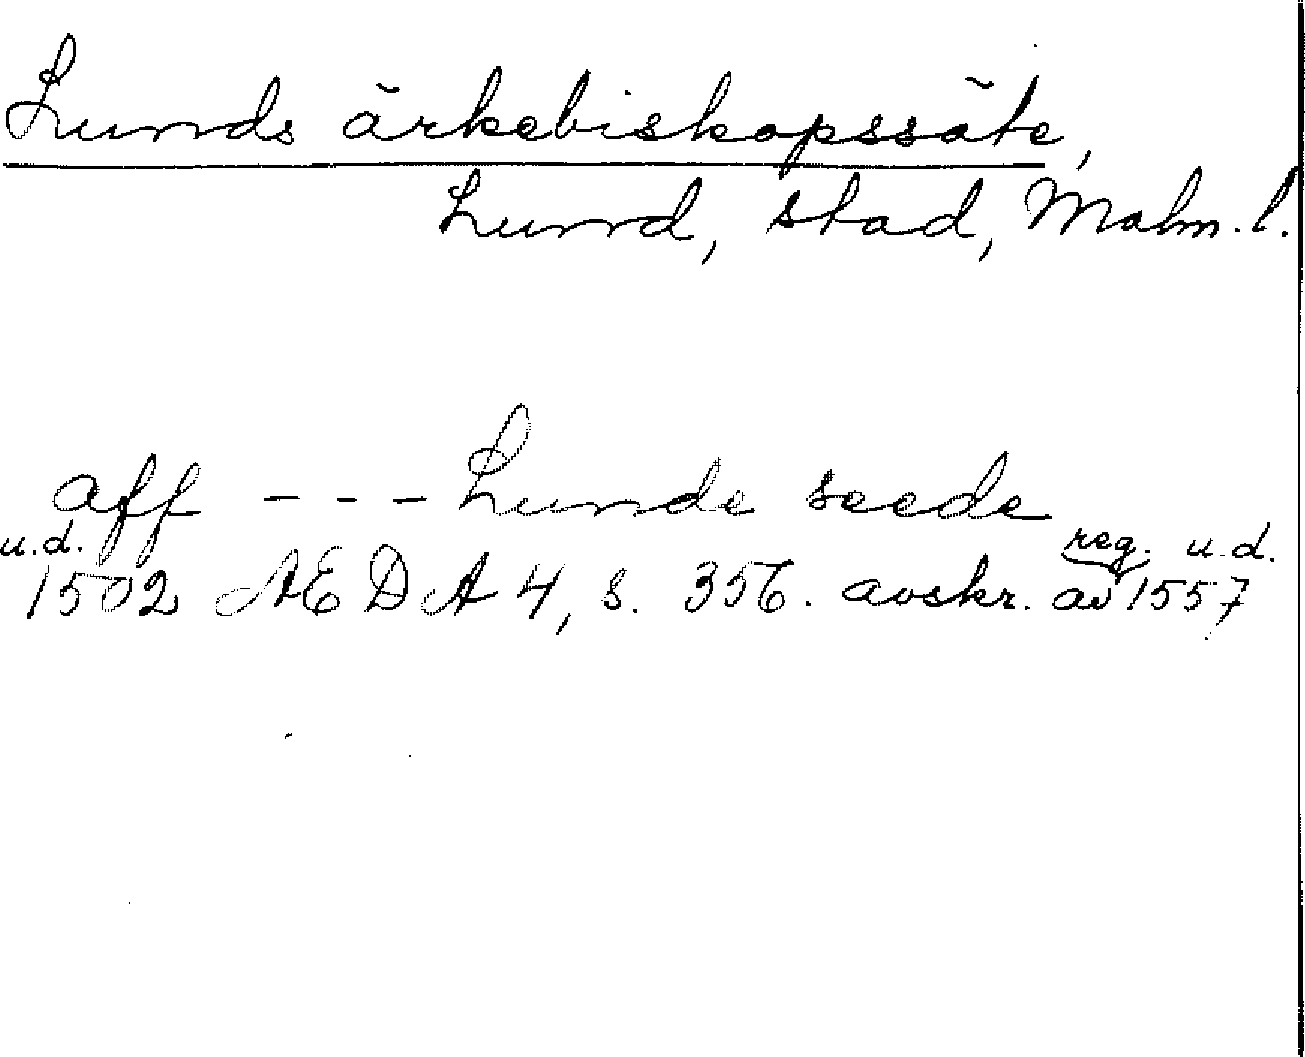 Lunds ärkebiskopssäte,
Lund, stad, Malm. l.
aff - - - Lunde seede
u.d. reg. u.d.
1502 AEDA 4, s. 356. avskr. av 1557